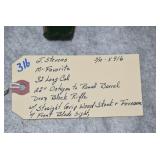 316
J. Stevens S/N - X916
M- Favorite
32 Long Colt
22" Octagon to Round Barrel
Drop Block Rifle
w/ Straight Grip Wood Stock & Forearm
& Front Blade Sight